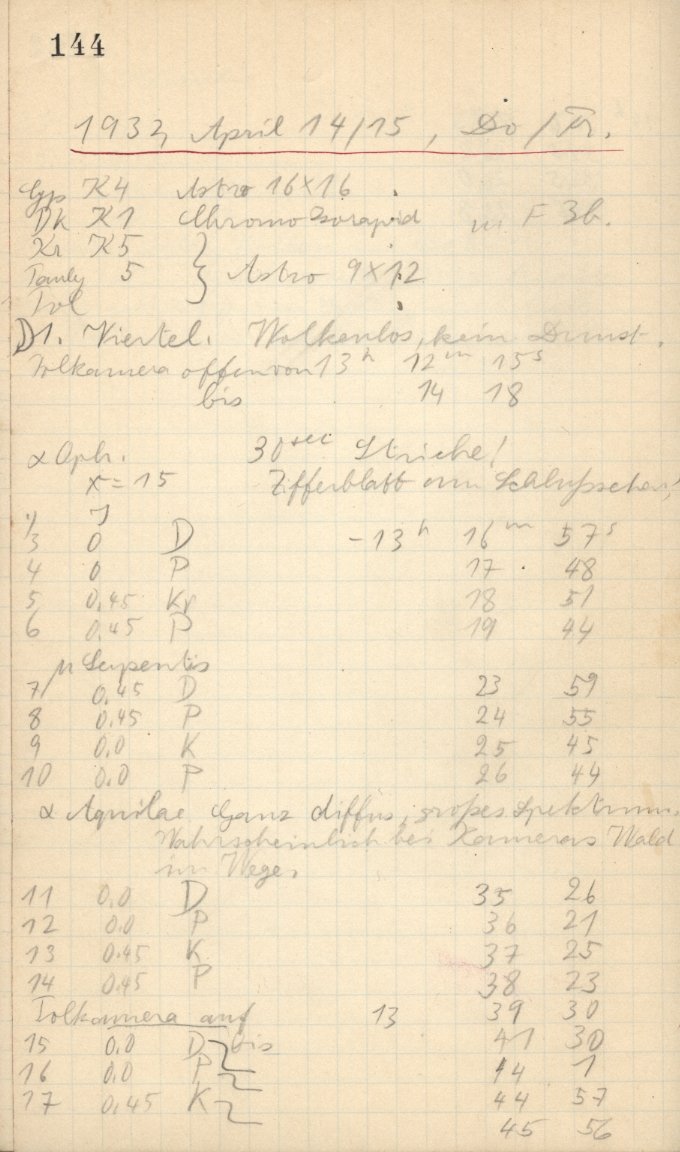 144
1932, April 14/15, Do/Fr.
Gyp K4 Astro 16×16
Dk K1 Chromo Isorapid m F 3b.
Kr K5
5 Astro 9×12
Pol
D 1. Viertel. Wolkenlos, kein Dunst.
Polkamera offen von 13h 12m 15s
bis 14 18
α Oph. 30sec Striche!
x = 15 Zifferblatt am
3 0 D -13h 16m 57s
4 0 P 17 48
5 0.45 Kr 18 51
6 0.45 P 19 44
μ Serpentis
7 0.45 D 23 59
8 0.45 P 24 55
9 0.0 K 25 45
10 0.0 P 26 44
α Aquilae Ganz diffus, großes Spektrum.
Wahrscheinlich bei Kameras Wald
im Wege.
11 0.0 D 35 26
12 0.0 P 36 21
13 0.45 K 37 25
14 0.45 P 38 23
Polkamera auf 13 39 30
15 0.0 D bis 41 30
16 0.0 P 14 1
17 0.45 K 44 57
45 56